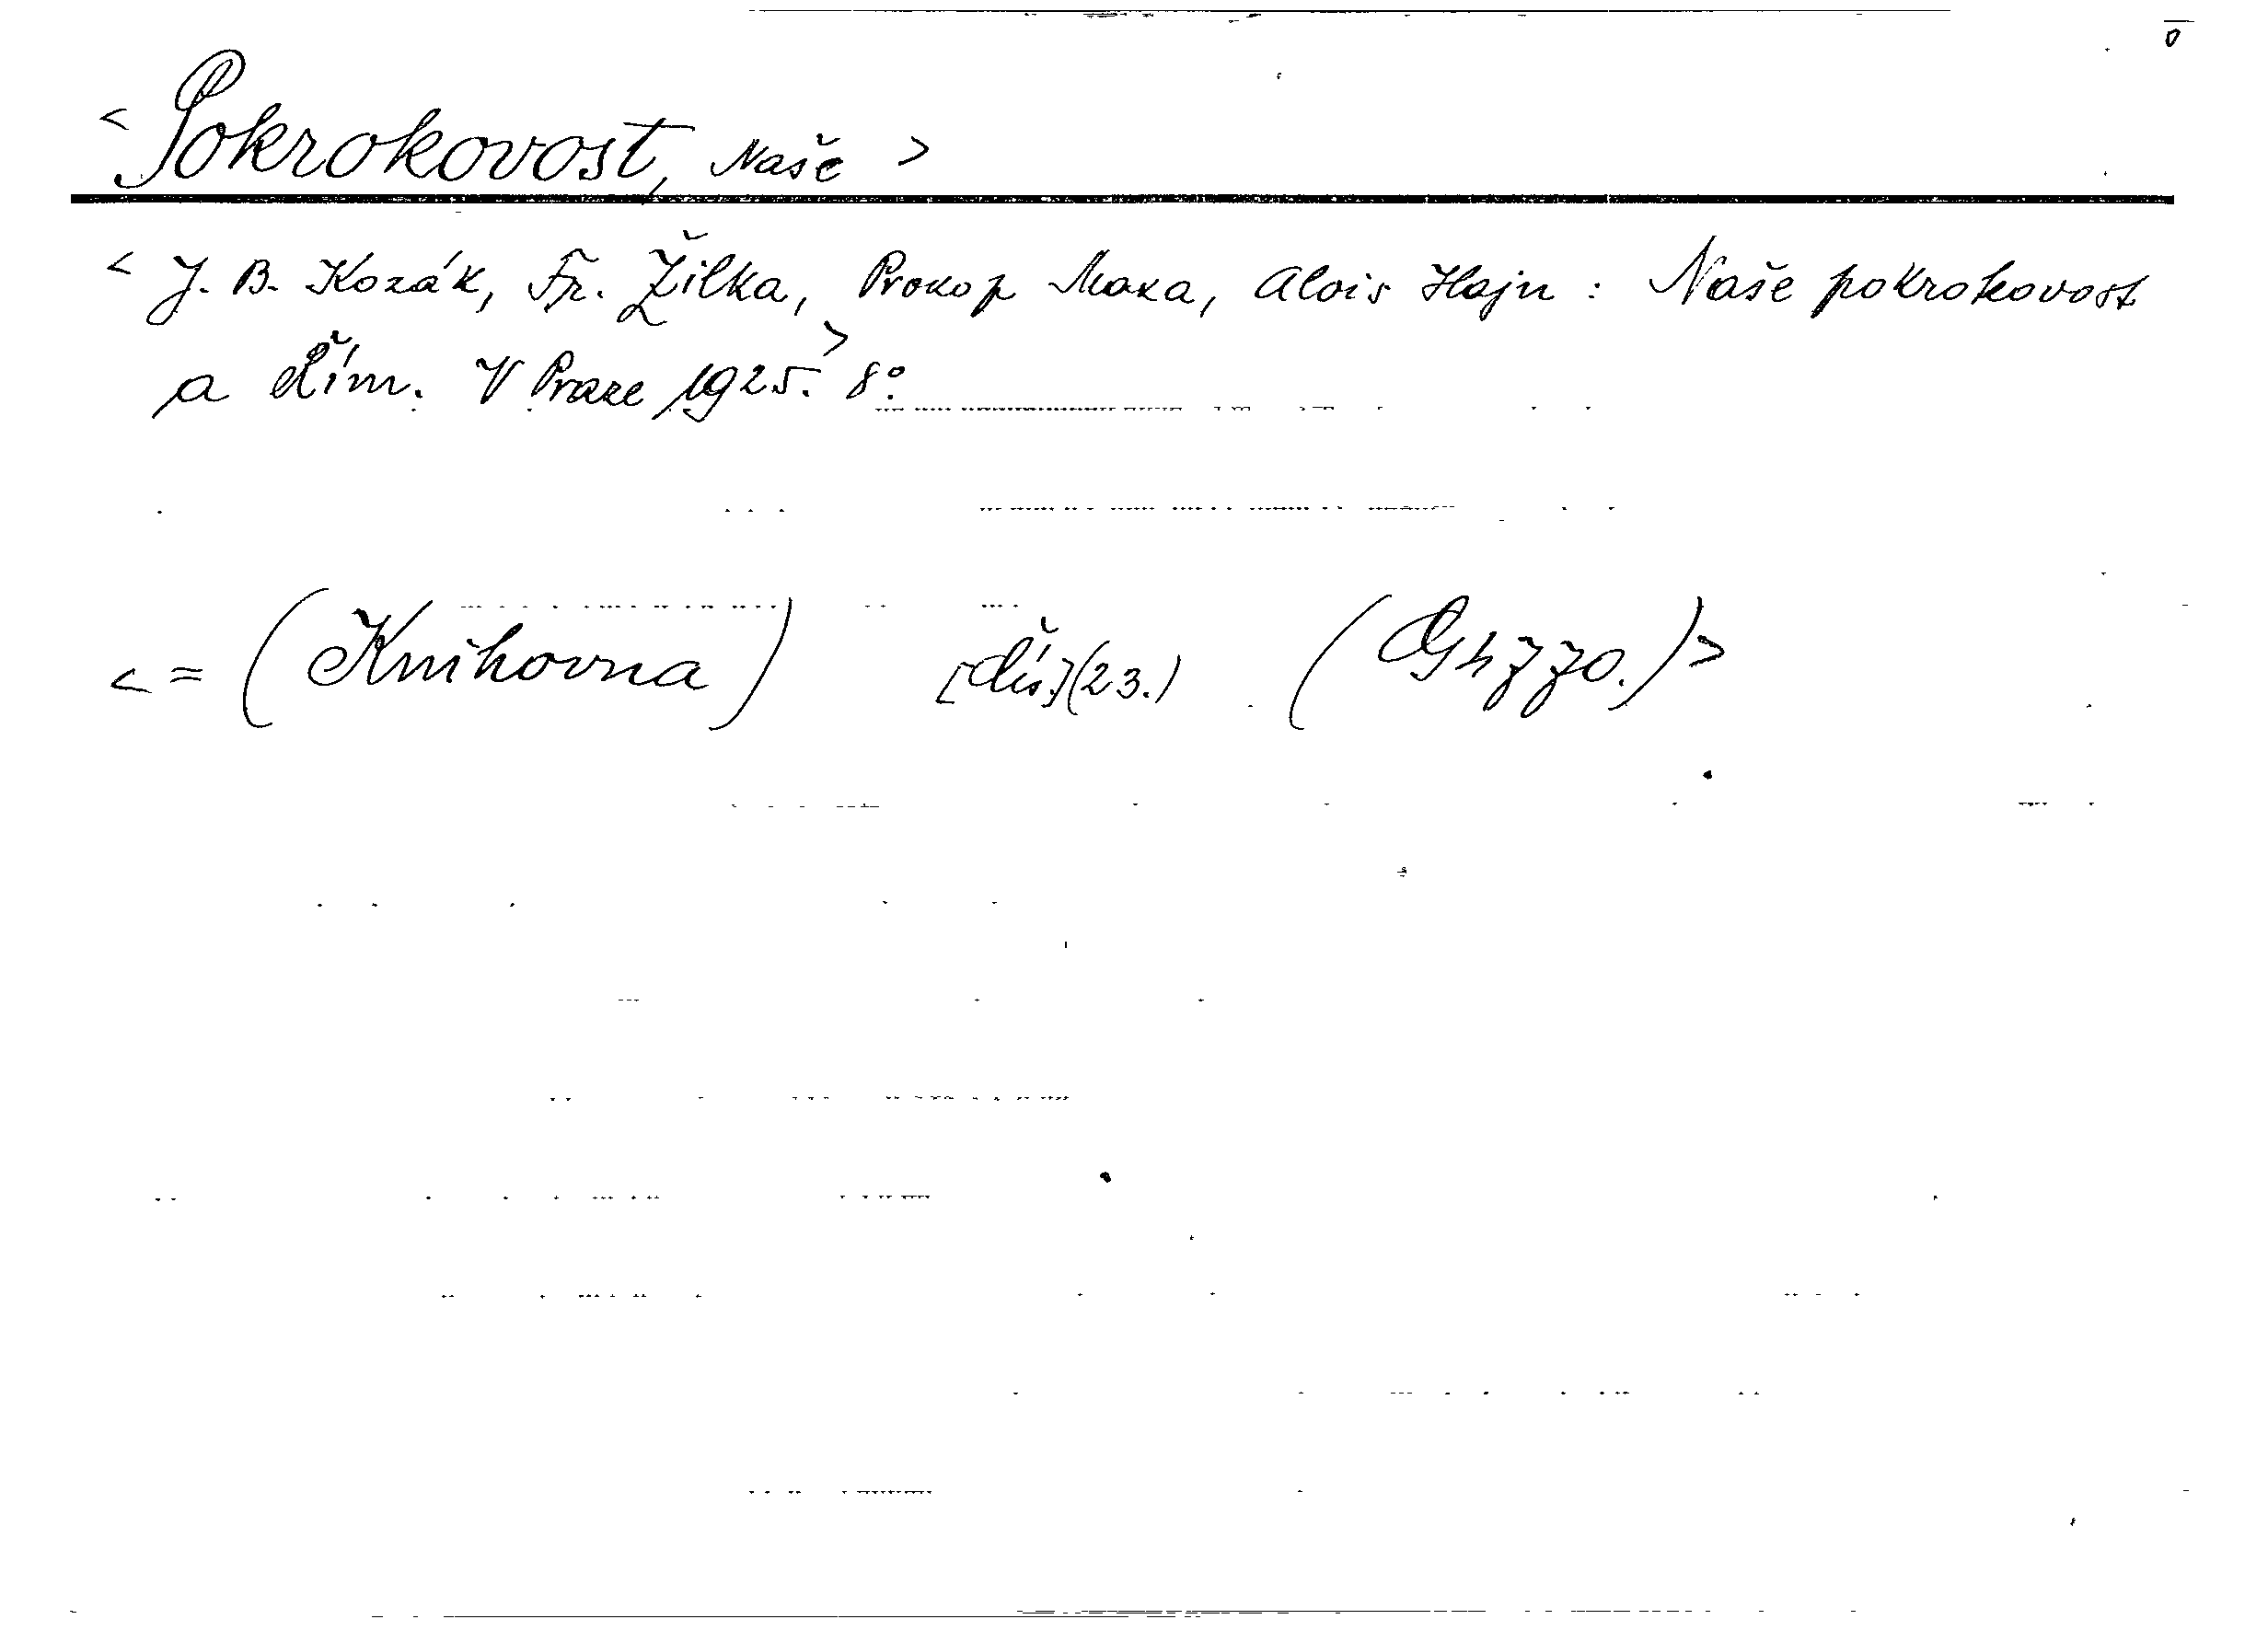 < Pokrokovost, Naše >
< J. B. Kozák, Fr. Žilka, Prokop Maxa, Alois Hajn : Naše pokrokovost
a Řím. V Praze 1925.> 8°.
< = (Knihovna) [čís.](23.) (G 4770.) >